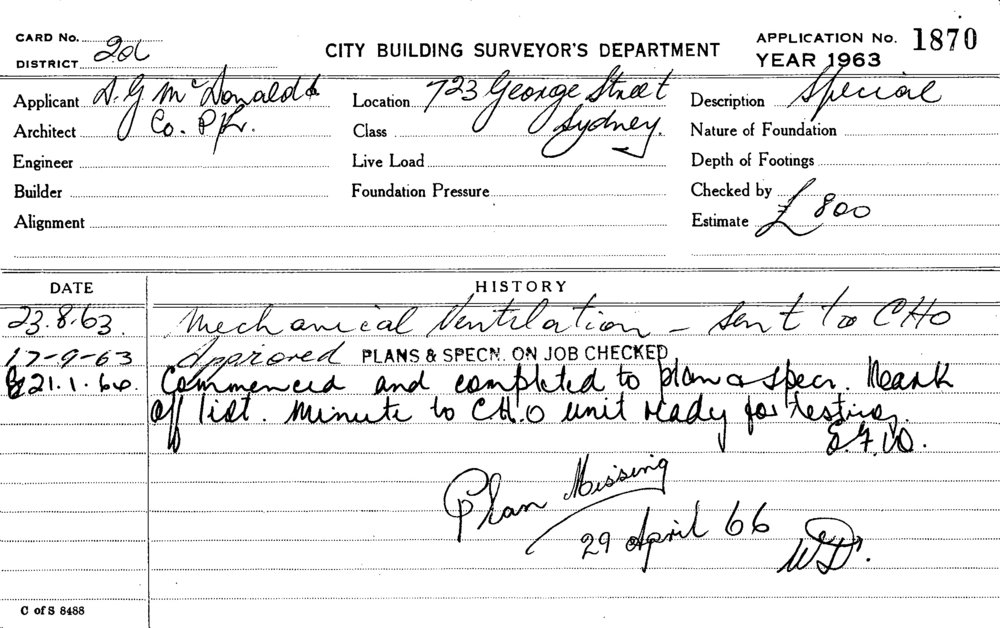 CARD No. 2d
DISTRICT
CITY BUILDING SURVEYOR'S DEPARTMENT
APPLICATION No. 1870
YEAR 1963
Applicant D. G McDonald &
Architect Co. P/L.
Engineer
Builder
Alignment
Location 723 George Street
Class Sydney.
Live Load
Foundation Pressure
Description Special
Nature of Foundation
Depth of Footings
Checked by
Estimate £ 800
DATE HISTORY
23.8.63. Mechanical Ventilation - Sent to CHO
17-9-63 Approved PLANS & SPECN. ON JOB CHECKED
21.1.64. Commenced and completed to plan & specn. Mark
off list. Minute to C.H.O unit ready for testing.
Plan Missing
29 April 66
C of S 8488